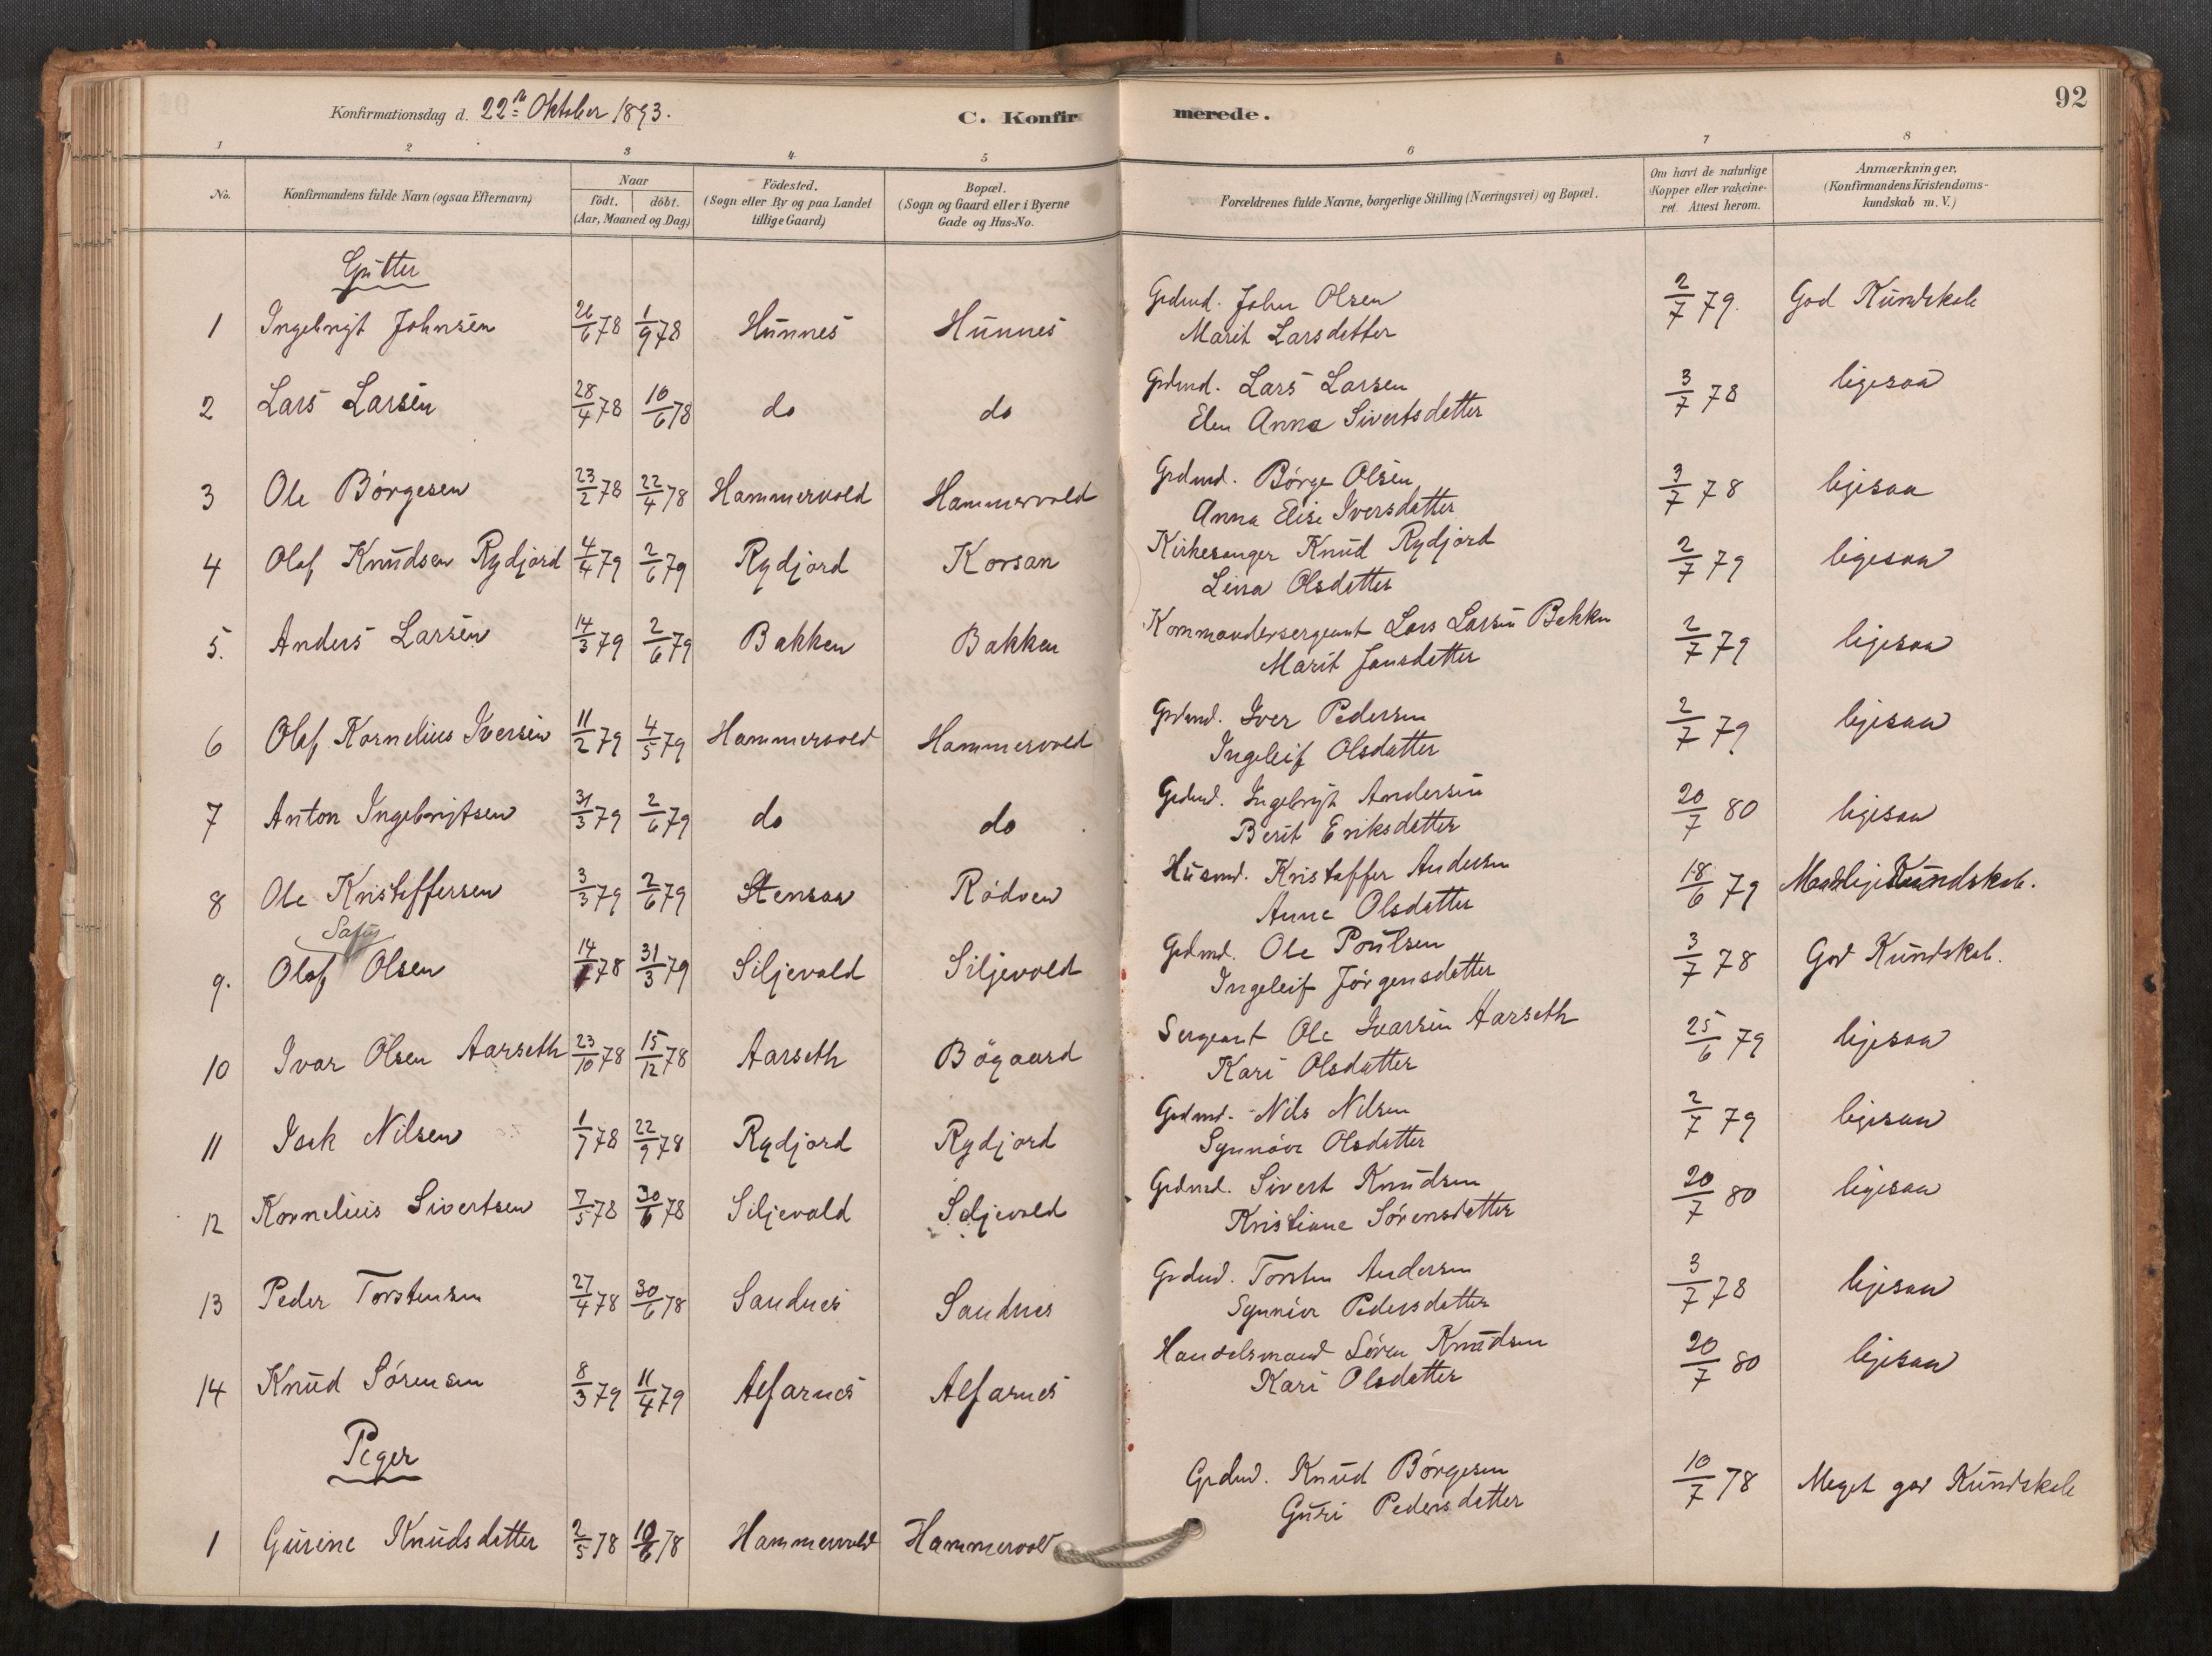 Konfirmationsdag d. 22n Oktober 1893.
C. Konfirmerede.
92
1 2 3 4 5 6 7 8
No.
Konfirmandens fulde Navn (ogsaa Efternavn)
Naar
födt. döbt.
(Aar, Maaned og Dag)
Födested.
(Sogn eller By og paa Landet
tillige Gaard)
Bopæl.
(Sogn og Gaard eller i Byerne
Gade og Hus-No.
Forældrenes fulde Navne, borgerlige Stilling (Næringsvei) og Bopæl.
Om havt de naturlige
Kopper eller vakcine-
ret. Attest herom.
Anmærkninger,
(Konfirmandens Kristendoms-
kundskab m. V.)
Gutter
1 Ingebrigt Johnsen 26/6 78 1/9 78 Hunnes Hunnes Grdmd. John Olsen 2/7 79. God Kundskab
Marit Larsdatter
2 Lars Larsen 28/4 78 10/6 78 do do Grdmd. Lars Larsen 3/7 78 ligesaa
Elen Anna Sivertsdatter
3 Ole Börgesen 23/2 78 22/4 78 Hammervold Hammervold Grdmd. Börge Olsen 3/7 78 ligesaa
Anna Elise Iversdatter
4 Olaf Knudsen Rydjord 4/4 79 2/6 79 Rydjord Korsan Kirkesanger Knud Rydjord 2/7 79 ligesaa
Lina Olsdatter
5. Anders Larsen 14/3 79 2/6 79 Bakken Bakken Kommandersergeant Lars Larsen Bakken 2/7 79 ligesaa
Marit Jonsdatter
6 Olaf Kornelius Iversen 11/2 79 4/5 79 Hammervold Hammervold Grdmd. Iver Pedersen 2/7 79 ligesaa
Ingeleif Olsdatter
7 Anton Ingebrigtsen 31/3 79 2/6 79 do do Grdmd. Ingebrigt Andersen 20/7 80 ligesaa
Berit Eriksdatter
8 Ole Kristoffersen 3/3 79 2/6 79 Stensaa Rödven Husmd. Kristoffer Andersen 18/6 79 Maadelige Kundskab.
Anne Olsdatter
9. Olaf Olsen 14/ 78 31/3 79 Siljevold Siljevold Grdmd. Ole Poulsen 3/7 78 God Kundskab.
Ingeleif Jörgensdatter
10 Ivar Olsen Aarseth 23/10 78 15/12 78 Aarseth Bögaard Sergeant Ole Ivarsen Aarseth 25/6 79 ligesaa
Kari Olsdatter
11 Isak Nilsen 1/7 78 22/9 78 Rydjord Rydjord Grdmd. Nils Nilsen 2/7 79 ligesaa
Synnöve Olsdatter
12 Kornelius Sivertsen 7/5 78 30/6 78 Siljevold Siljevold Grdmd. Sivert Knudsen 20/7 80 ligesaa
Kristiane Sörensdatter
13 Peder Torstensen 27/4 78 30/6 78 Sandnes Sandnes Grdmd. Torsten Andersen 3/7 78 ligesaa
Synnöve Pedersdatter
14 Knud Sörensen 8/3 79 11/4 79 Alfarnes Alfarnes Handelsmand Sören Knudsen 20/7 80 ligesaa
Kari Olsdatter
Piger
1 Gurine Knudsdatter 2/5 78 10/6 78 Hammervold Hammervold Grdmd. Knud Börgesen 10/7 78 Meget god Kundskab
Guri Pedersdatter